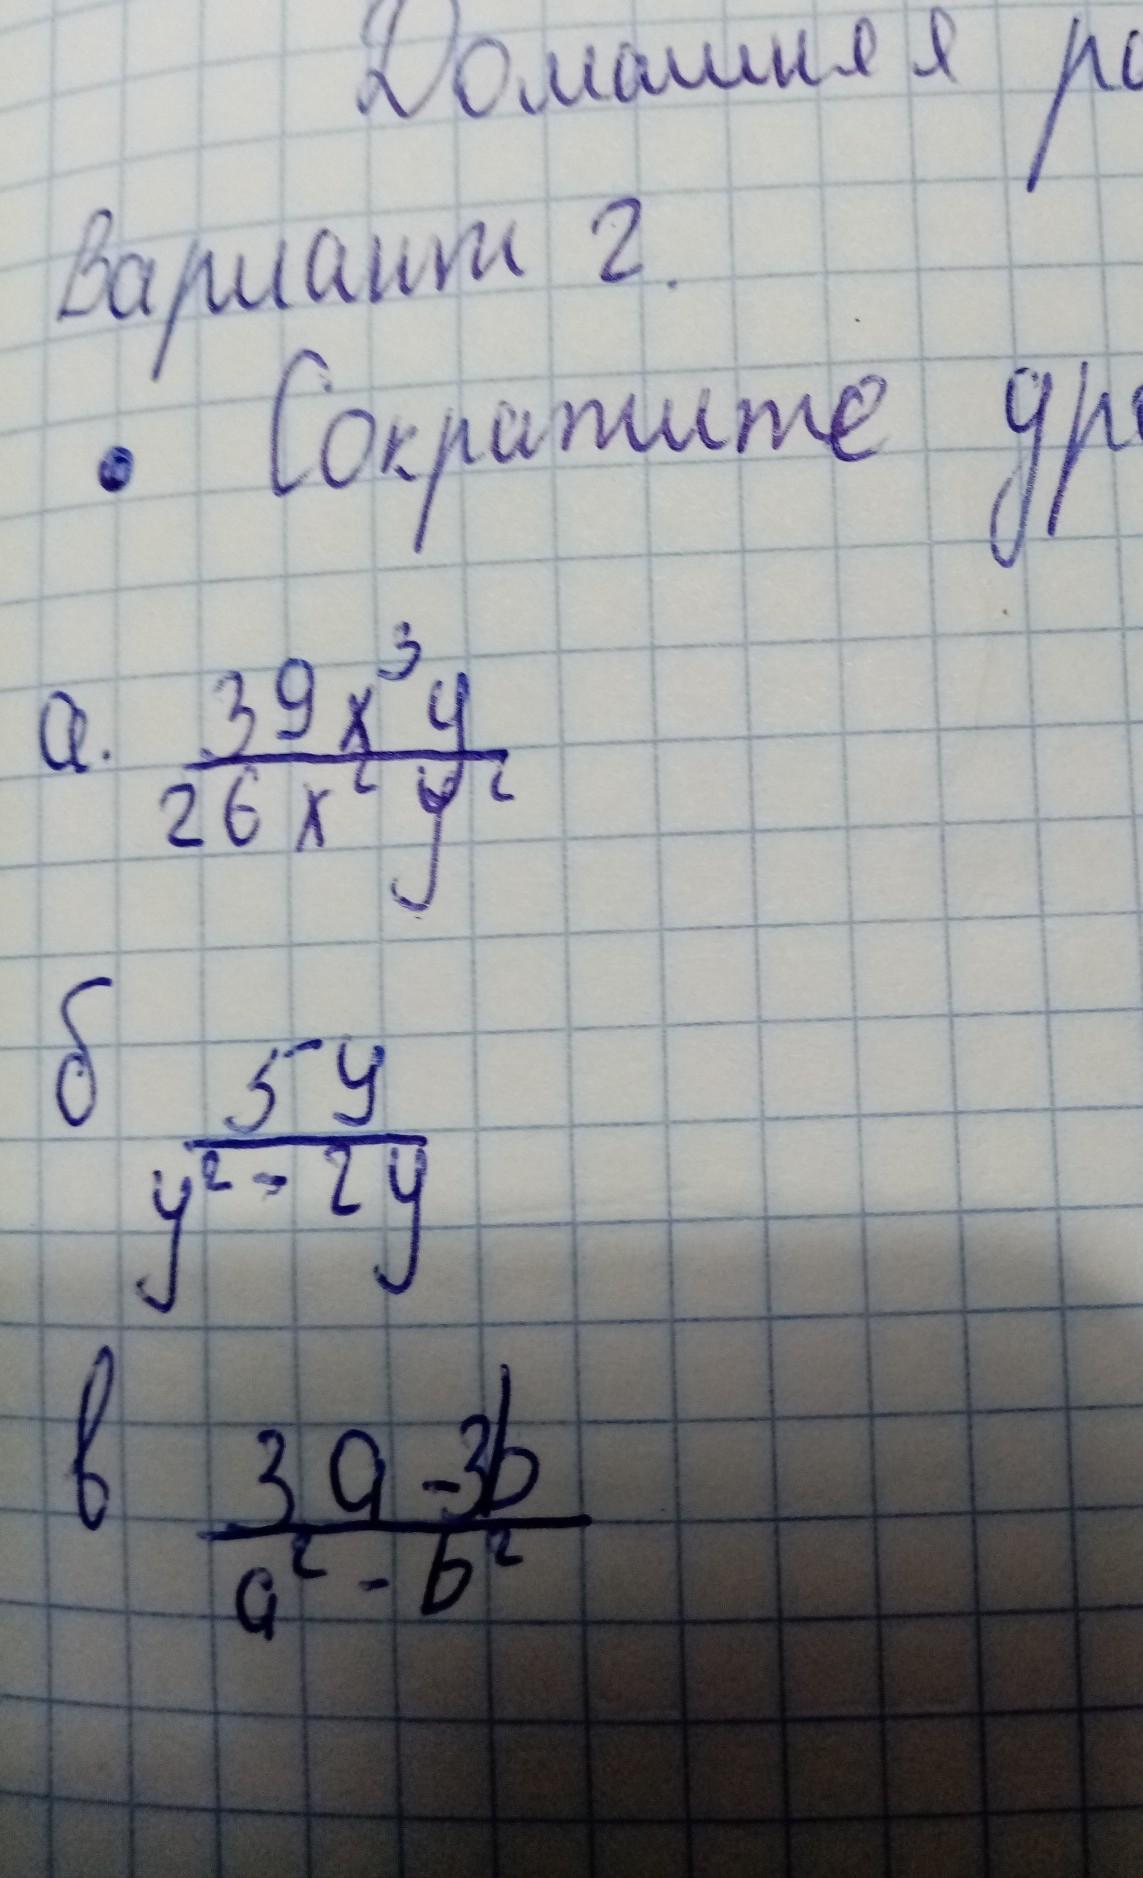 Домашняя ра
Вариант 2.
• Сократите дро
а. 39x³y
26x²y²
б 5y
y² - 2y
в 3a - 3b
a² - b²